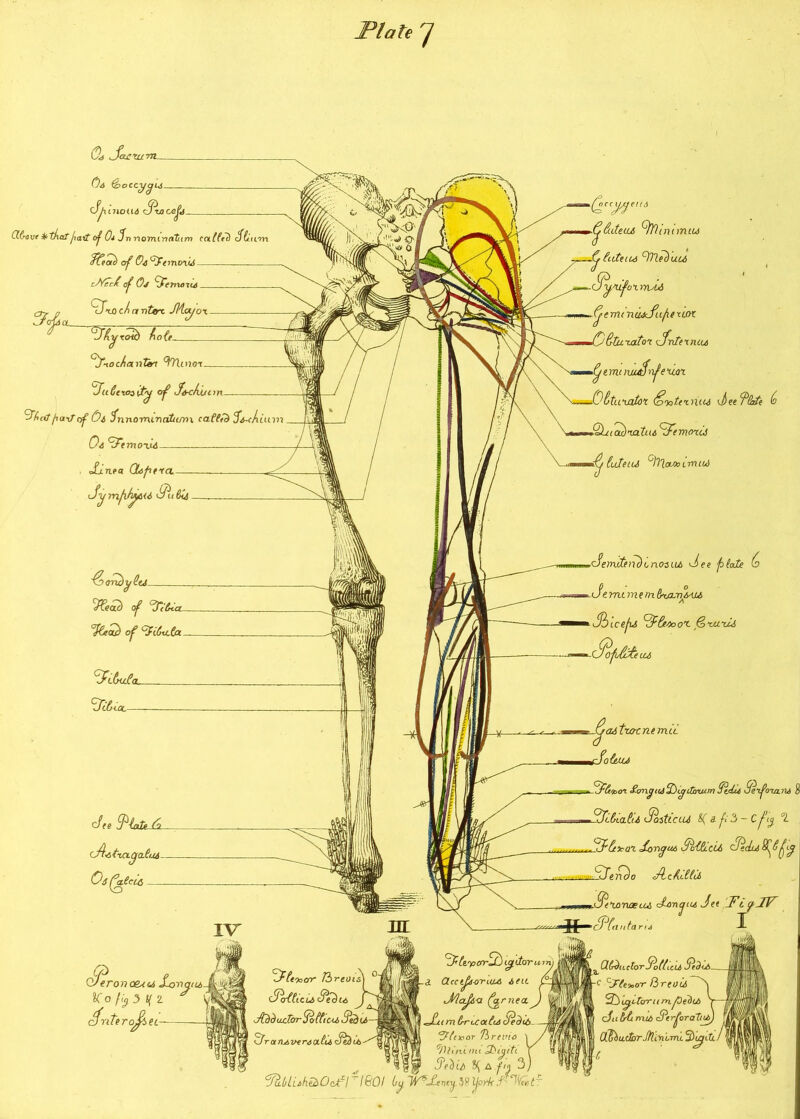 Plate 7
Os Sacrum
Os Coccygis
Spinous Process
Above * that part of Os Innominatum called Ilium
Head of Os Femoris
Neck of Os Femoris
Trochanter Major
Fossa
Thyroid hole
Trochanter Minor
Tuberosity of Ischium
That part of Os Innominatum called Ischium
Os Femoris
Linea Aspera
Symphysis Pubis
Condyles
Head of Tibia
Head of Fibula
Fibula
Tibia
See Plate 6
Astragalus
Os Calcis
Coccygeus
Gluteus Minimus
Gluteus Medius
Pyriformis
Gemini Superior
Obturator Internus
Gemini Inferior
Obturator Externus See Plate 6
Quadratus Femoris
Gluteus Maximus
Semitendinosus See plate 6
Semimembranosus
Biceps Flexor Cruris
Popliteus
Gastrocnemii
Soleus
Flexor Longus Digitorum Pedis Perforans &
Tibialis Posticus & a f. 3 - C fig 2
Flexor Longus Pollicis Pedis & b fig
Tendo Achillis
Peronæus Longus See Fig IV
Plantaris
IV
III
I
Peronœus Longus
& o fig 3 & 2
Interossei
Flexor Brevis
Pollicis Pedis
Adductor Pollicis Pedis
Transversalis Pedis
a
Flexor Digitorum
accessorius seu
Massa Carnea
Lumbricales Pedis
Flexor Brevis
Minimi Digiti
Pedis & a fig 3
a
Abductor Pollicis Pedis
c Flexor Brevis
Digitorum pedis
Sublimis Perforatus
Abductor Minimi Digiti
b
Published Oct 1 1801 by W Henry, 38 York Street